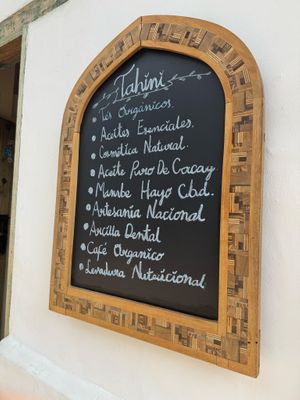 Tahini
• Tés Orgánicos.
• Aceites Esenciales.
• Cosmética Natural.
• Aceite Puro De Cacay
• Mambe Hayo Cba.
• Artesanía Nacional
• Arcilla Dental
• Café Organico
• Levadura Nutricional.